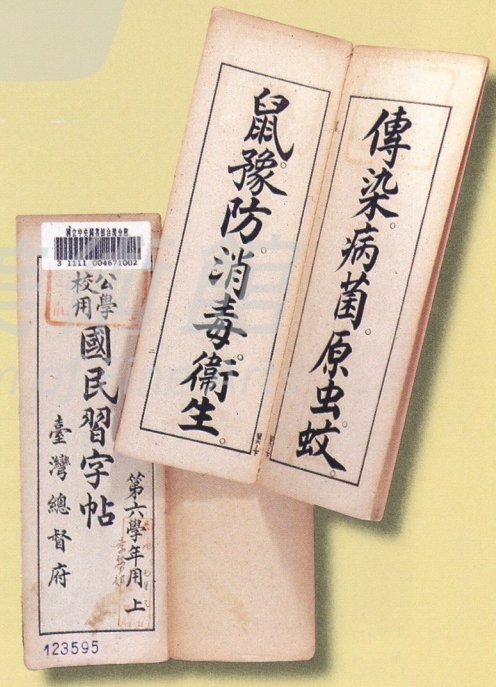 傳染病菌原虫蚊
鼠豫防消毒衞生
國立中央圖書館台灣分館
3 1111 004671002
公學校用
國民習字帖
第六學年用 上
臺灣總督府
123595